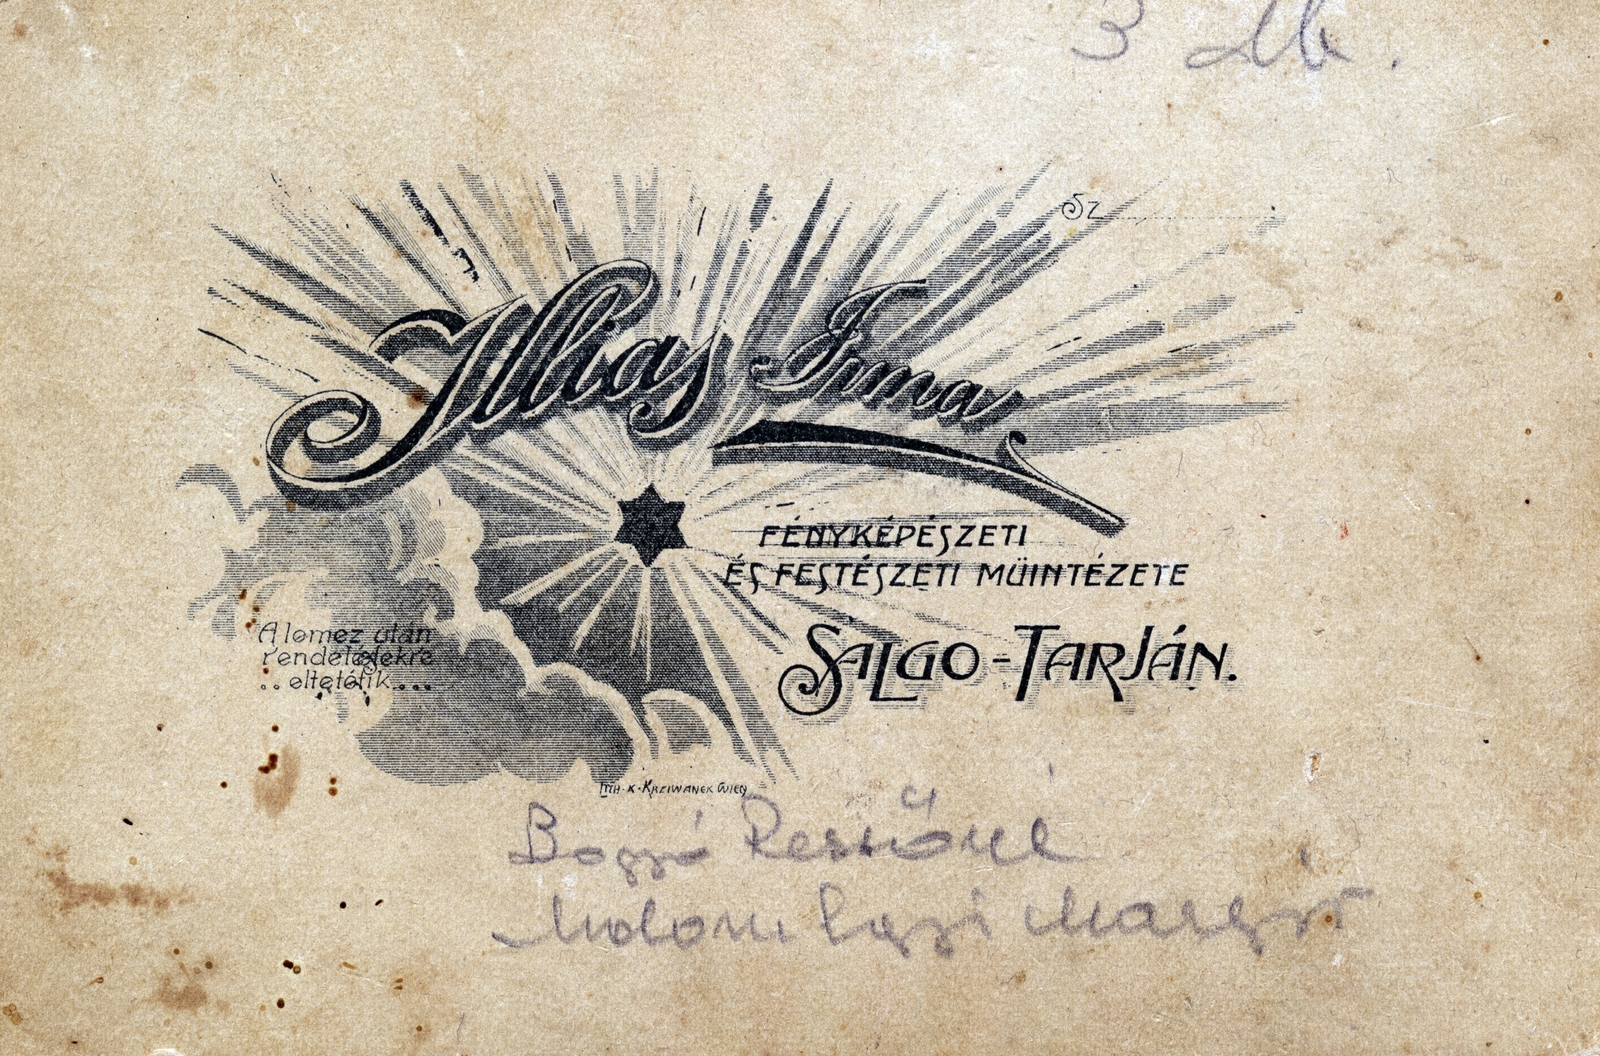 3 db.
Sz
Illias Irma
FÉNYKÉPÉSZETI
ÉS FESTÉSZETI MŰINTÉZETE
SALGO-TARJÁN.
A lemez után
rendelésekre
.. eltetétik....
LITH. K. KRZIWANEK WIEN
Bozzó